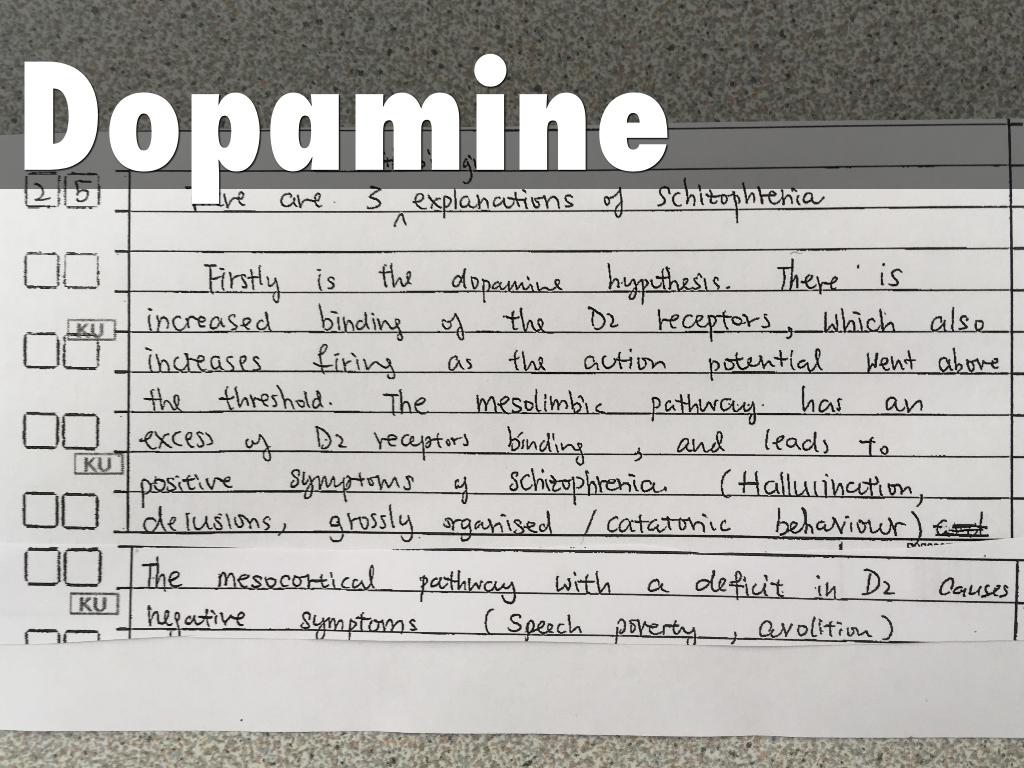 Dopamine
25 are 3 explanations of Schizophrenia
Firstly is the dopamine hypothesis. There is
KU
increased binding of the D2 receptors, which also
increases firing as the action potential went above
the threshold. The mesolimbic pathway has an
excess of D2 receptors binding, and leads to
KU
positive symptoms of schizophrenia. (Hallucination,
delusions, grossly organised / catatonic behaviour)
The mesocortical pathway with a deficit in D2 causes
KU
negative symptoms (Speech poverty, avolition)